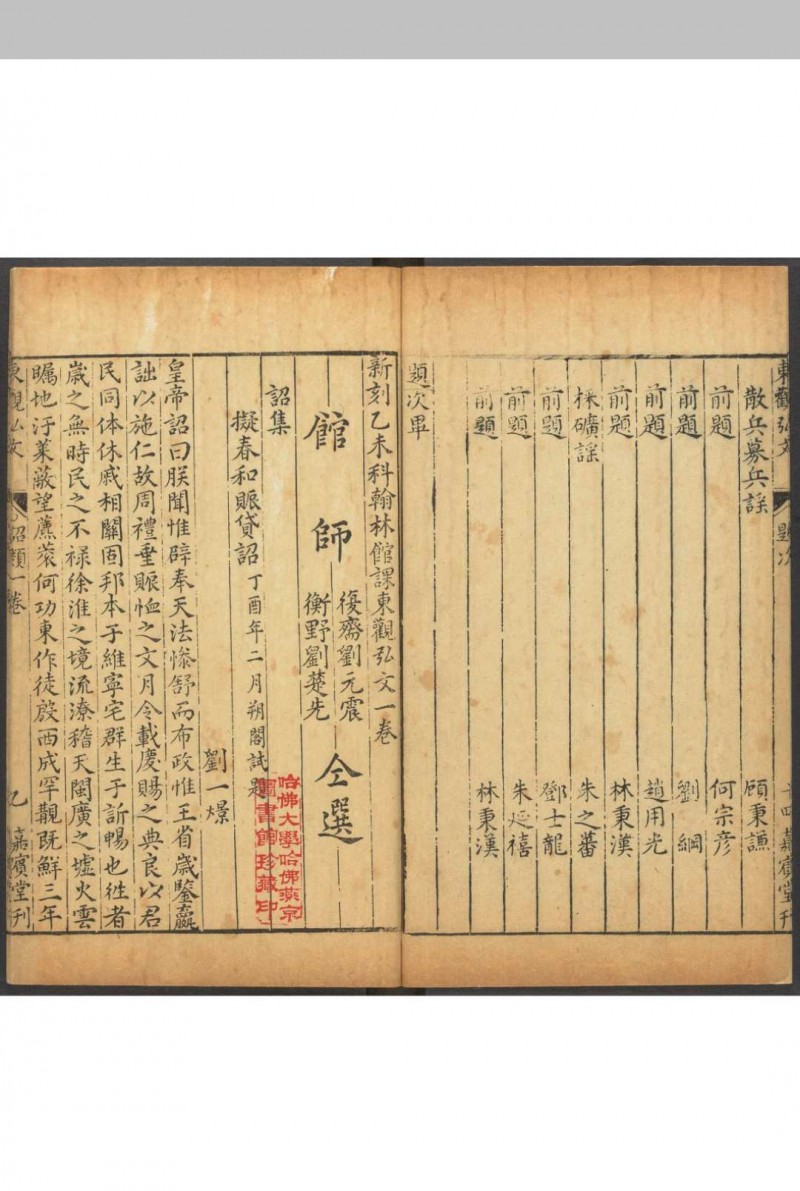 東觀弘文 題次 十四 嘉賓堂刊
散兵募兵謠 顧秉謙
前題 何宗彥
前題 劉綱
前題 趙用光
前題 林秉漢
採礦謠 朱之蕃
前題 鄧士龍
前題 朱延禧
前題 林秉漢
題次畢
新刻乙未科翰林館課東觀弘文一卷
館師 復齋劉元震 仝選
衡野劉楚先
詔集
擬春和賑貸詔 丁酉年二月朔閣試題
劉一燝
皇帝詔曰朕聞惟辟奉天法慘舒而布政惟王省歲鑒贏
詘以施仁故周禮垂賑恤之文月令載慶賜之典良以君
民同体休戚相關固邦本于維寧宅群生于訢暢也徃者
歲之無時民之不禄徐淮之境流潦稽天閩廣之墟火雲
矚地汙萊蔽望薦蓘何功東作徒殷西成罕覯既鮮三年
東觀弘文 詔類一卷 乙 嘉賓堂刊
哈佛大學哈佛燕京
圖書館珍藏印